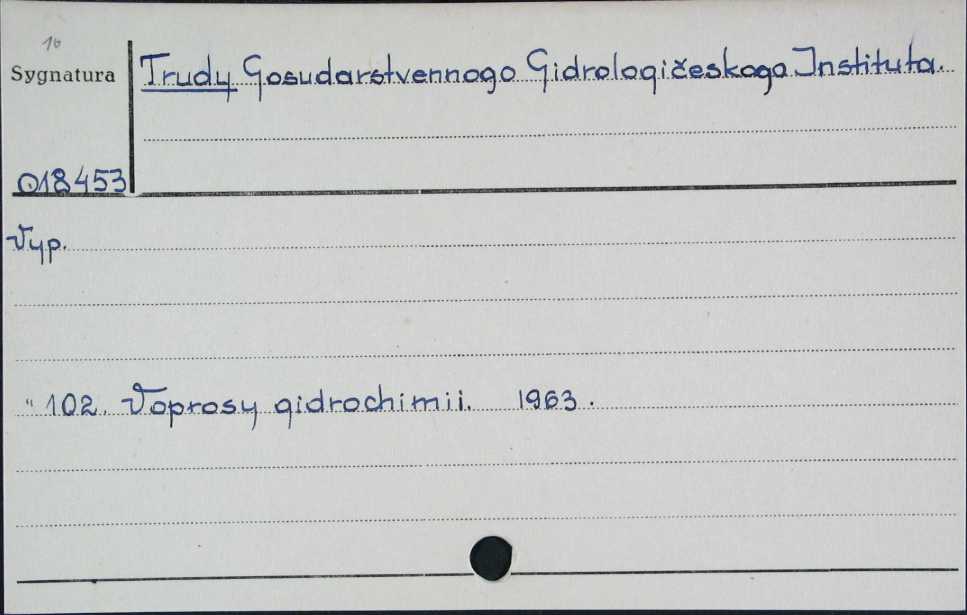 10
Sygnatura
Trudy Gosudarstvennogo Gidrologičeskogo Instituta.
018453
Vyp.
" 102. Voprosy gidrochimii. 1963.